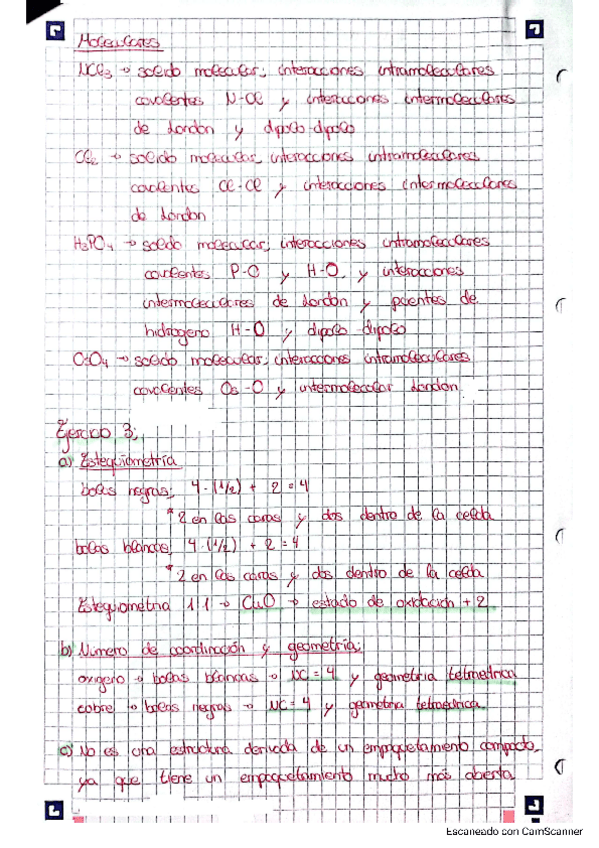 Moleculares
NCl3 → solido molecular; interacciones intramoleculares
covalentes N-Cl y interacciones intermoleculares
de London y dipolo-dipolo
Cl2 → solido molecular, interacciones intramoleculares
covalentes Cl-Cl y interacciones intermoleculares
de London
H3PO4 → solido molecular, interacciones intramoleculares
covalentes P-O y H-O, y interacciones
intermoleculares de London y puentes de
hidrogeno H-O y dipolo dipolo
OsO4 → solido molecular; interacciones intramoleculares
covalentes Os-O y intermolecular London.
Ejercicio 3;
a) Estequiometría
bolas negras; 4·(1/2) + 2 = 4
* 2 en las caras y dos dentro de la celda
bolas blancas; 4·(1/2) + 2 = 4
* 2 en las caras y dos dentro de la celda
Estequiometria 1:1 → CuO → estado de oxidación +2
b) Número de coordinación y geometría;
oxigeno → bolas blancas → NC = 4 y geometria tetraedrica
cobre → bolas negras → NC = 4 y geometria tetraedrica
c) No es una estructura derivada de un empaquetamiento compacto,
ya que tiene un empaquetamiento mucho más abierto
Escaneado con CamScanner